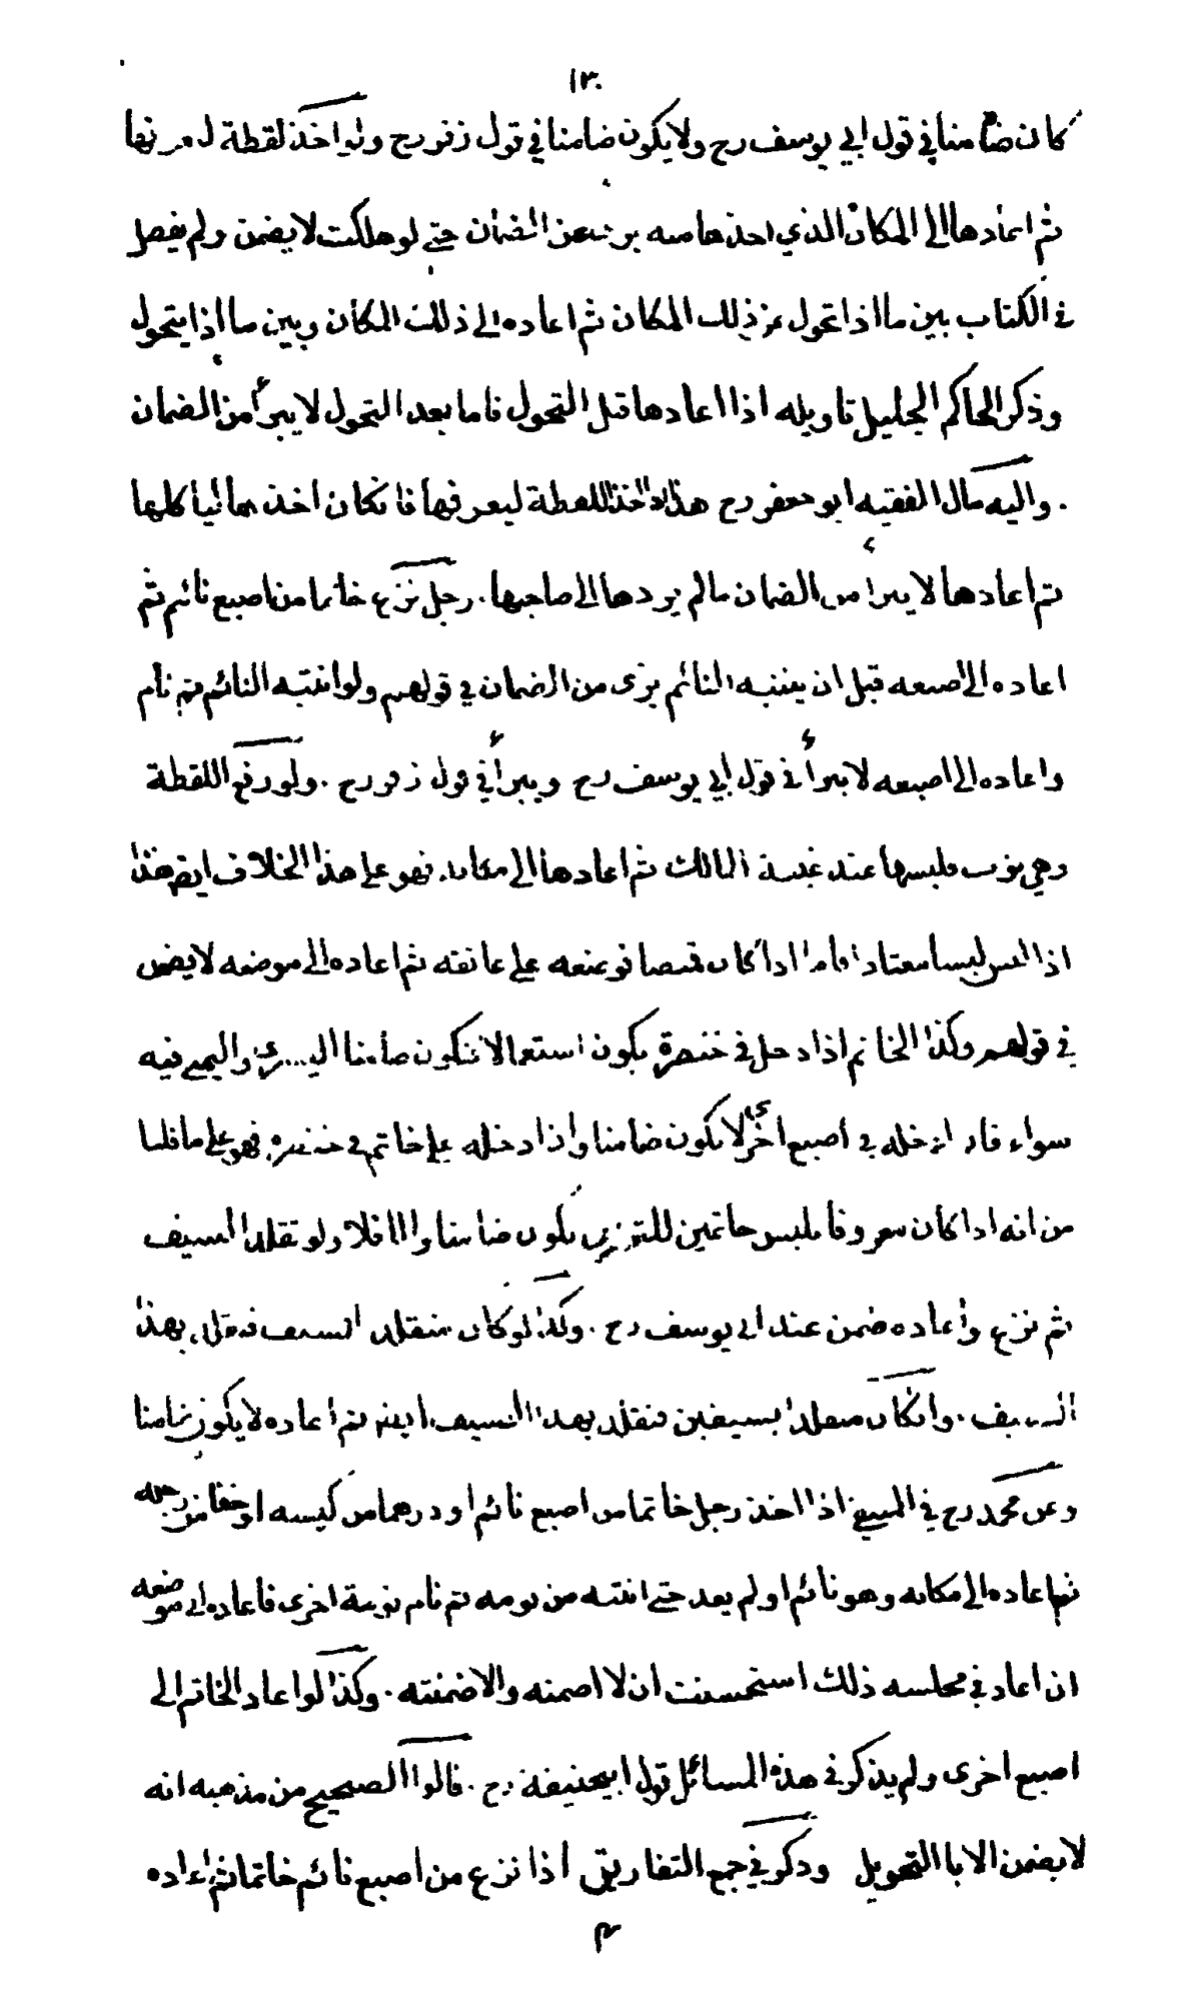 ١٣٠
كان ضامنا في قول ابي يوسف رح ولا يكون ضامنا في قول زفر رح ولو اخذ لقطة ليعرفها
ثم اعادها الى المكان الذي اخذها منه برئ عن الضمان حتى لو هلكت لا يضمن ولم يفصل
في الكتاب بين ما اذا تحول عن ذلك المكان ثم اعاده الى ذلك المكان وبين ما اذا يتحول
وذكر الحاكم الجليل تاويله اذا اعادها قبل التحول فاما بعد التحول لا يبرأ من الضمان
واليه مال الفقيه ابو جعفر رح هذا اذا اخذ اللقطة ليعرفها فانكان اخذها ليأكلها
ثم اعادها لا يبرأ من الضمان ما لم يردها الى صاحبها. رجل نزع خاتما من اصبع نائم ثم
اعاده الى اصبعه قبل ان ينتبه النائم برئ من الضمان في قولهم ولو انتبه النائم ثم نام
واعاده الى اصبعه لا يبرأ في قول ابي يوسف رح ويبرأ في قول زفر رح. ولو رفع اللقطة
وهي ثوب فلبسها عند غيبة المالك ثم اعادها الى مكانه فهو على هذا الخلاف ايضا هذا
اذا لبس لبسا معتادا فاما اذا كان قميصا فوضعه على عاتقه ثم اعاده الى موضعه لا يضمن
في قولهم وكذا الخاتم اذا دخل في خنصره يكون استعمالا فيكون ضامنا اليسرى واليمنى فيه
سواء فان ادخله في اصبع اخرى لا يكون ضامنا واذا دخله على خاتم في خنصره فهو على ما قلنا
من انه اذا كان معروفا بلبس خاتمين للتزين يكون ضامنا والا فلا ولو تقلد السيف
ثم نزع واعاده ضمن عند ابي يوسف رح. وكذا لو كان متقلد السيف فتقلد بهذا
السيف. وانكان متقلدا بسيفين فتقلد بهذا السيف ايضا ثم اعاده لا يكون ضامنا
وعن محمد رح في المبيع اذا اخذ رجل خاتما من اصبع نائم او درهما من كيسه او خفا من رجله
ثم اعاده الى مكانه وهو نائم او لم يعد حتى انتبه من نومه ثم نام نومة اخرى فاعاده الى موضعه
ان اعاد في مجلسه ذلك استحسنت ان لا اضمنه والا ضمنته. وكذا لو اعاد الخاتم الى
اصبع اخرى ولم يذكر في هذه المسائل قول ابيحنيفة رح. قالوا الصحيح من مذهبه انه
لا يضمن الا باالتحويل وذكر في جمع التفاريق اذا نزع من اصبع نائم خاتما ثم اعاده